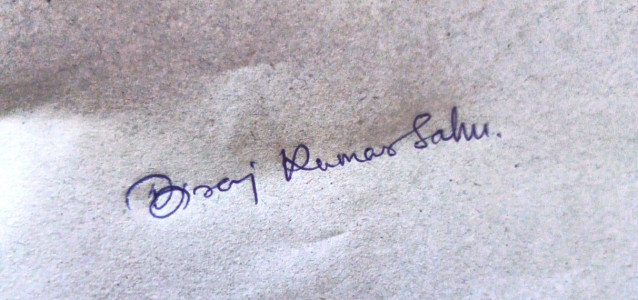 Biraj Kumar Sahu.